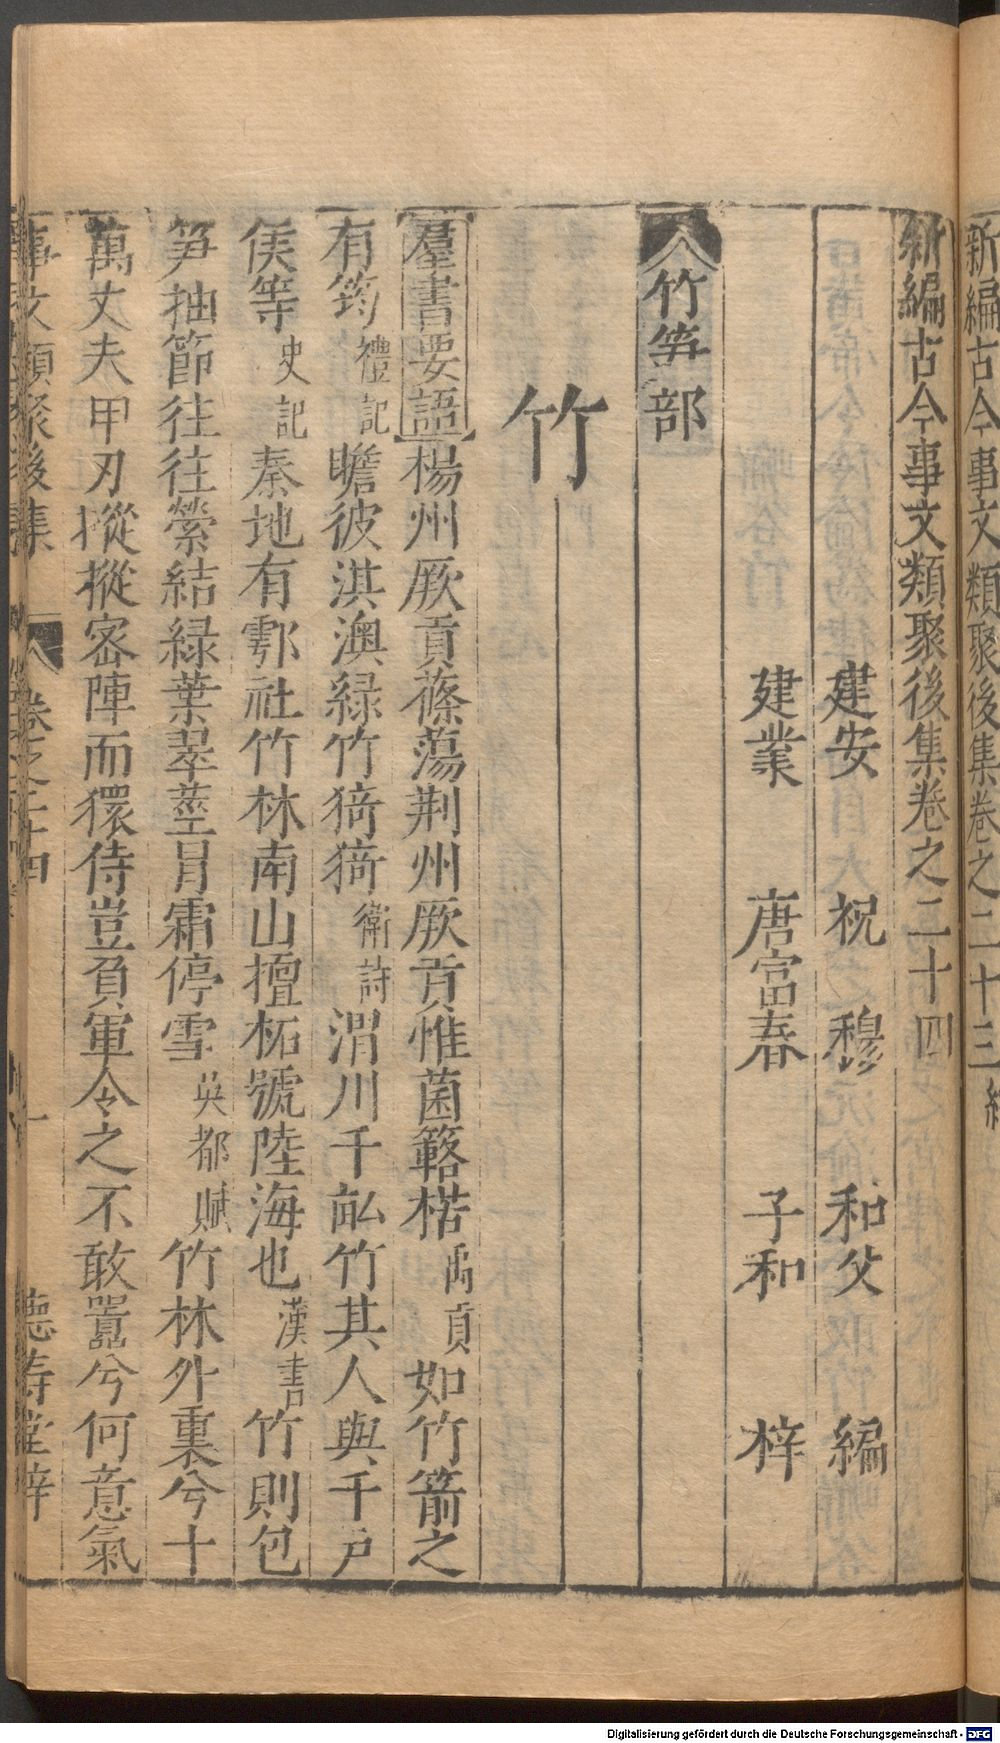 新編古今事文類聚後集卷之二十三終
新編古今事文類聚後集卷之二十四
建安 祝 穆 和父 編
建業 唐富春 子和 梓
竹笋部
竹
羣書要語 楊州厥貢篠蕩荆州厥貢惟菌簵楛禹貢如竹箭之
有筠禮記瞻彼淇澳緑竹猗猗衛詩渭川千畝竹其人與千戶
侯等史記秦地有鄠社竹林南山擅柘號陸海也漢書竹則包
笋抽節往往縈結緑葉翠莖冐霜停雪吳都賦竹林外裹兮十
萬丈夫甲刃摐摐宻陣而獧侍豈負軍令之不敢嚚兮何意氣
事文類聚後集 卷之二十四 一 德壽堂梓
Digitalisierung gefördert durch die Deutsche Forschungsgemeinschaft - DFG